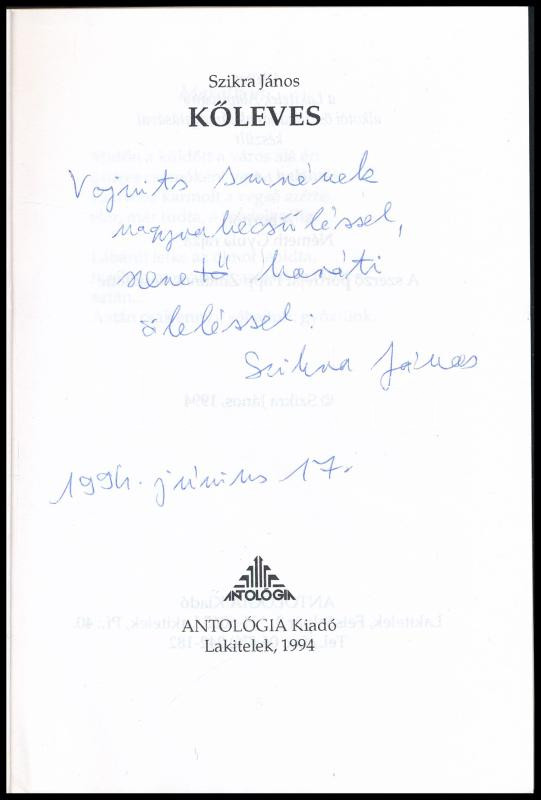 Szikra János
KŐLEVES
Vojnits Imrének
nagyrabecsüléssel,
szerető baráti
öleléssel:
Szikra János
1994. június 17.
ANTOLÓGIA
ANTOLÓGIA Kiadó
Lakitelek, 1994